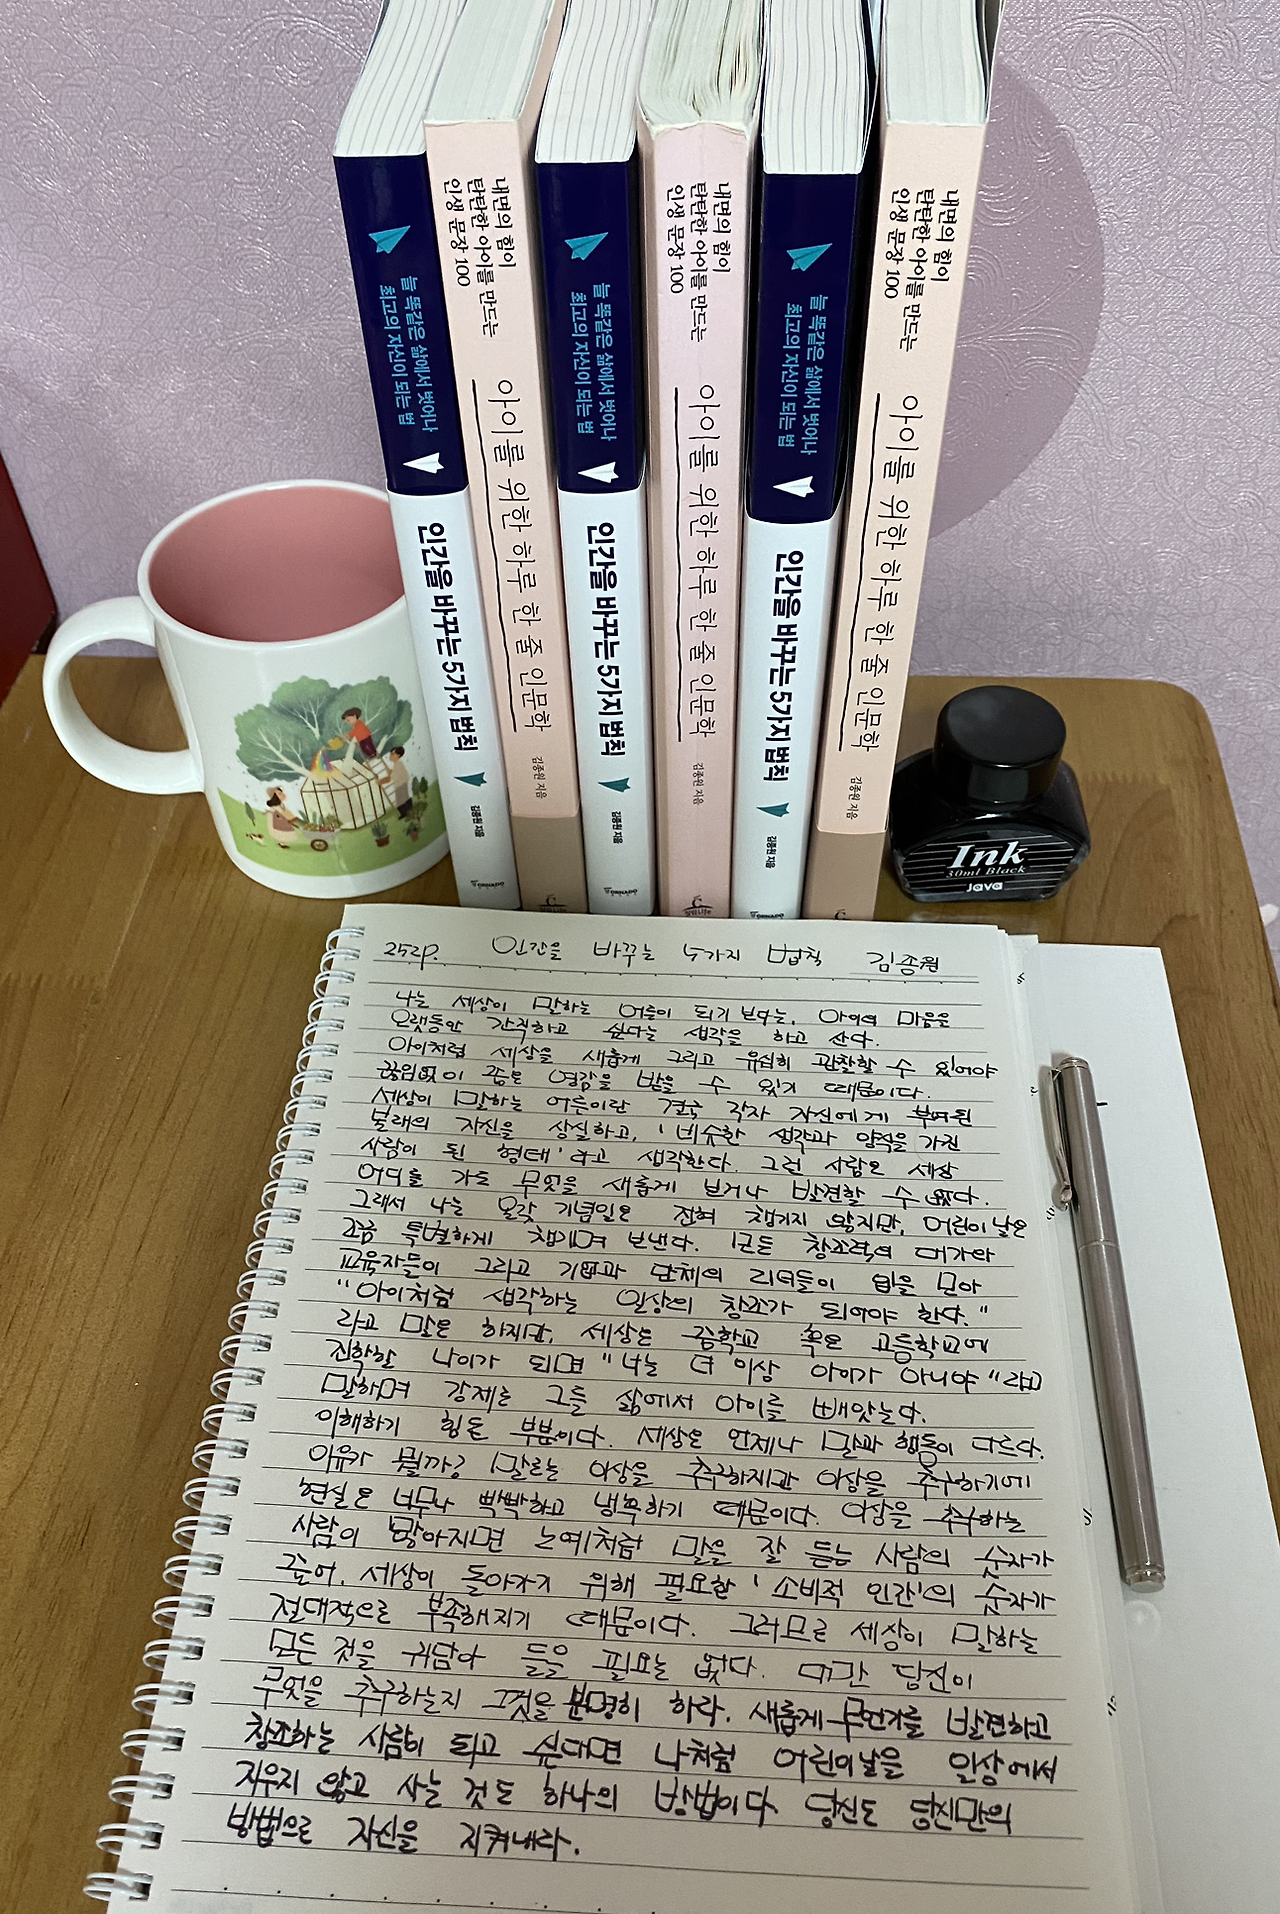 늘 똑같은 삶에서 벗어나
최고의 자신이 되는 법
인간을 바꾸는 5가지 법칙
김종원 지음
TORNADO
내면의 힘이
탄탄한 아이를 만드는
인생 문장 100
아이를 위한 하루 한 줄 인문학
김종원 지음
청림Life
늘 똑같은 삶에서 벗어나
최고의 자신이 되는 법
인간을 바꾸는 5가지 법칙
김종원 지음
TORNADO
내면의 힘이
탄탄한 아이를 만드는
인생 문장 100
아이를 위한 하루 한 줄 인문학
김종원 지음
청림Life
늘 똑같은 삶에서 벗어나
최고의 자신이 되는 법
인간을 바꾸는 5가지 법칙
김종원 지음
TORNADO
내면의 힘이
탄탄한 아이를 만드는
인생 문장 100
아이를 위한 하루 한 줄 인문학
김종원 지음
Ink
30ml Black
Java
252p. 인간을 바꾸는 5가지 법칙 김종원
나는 세상이 말하는 어른이 되기 보다는, 아이의 마음을
오랫동안 간직하고 싶다는 생각을 하고 산다.
아이처럼 세상을 새롭게 그리고 유심히 관찰할 수 있어야
끊임없이 좋은 영감을 받을 수 있기 때문이다.
세상이 말하는 어른이란 결국 각자 자신에게 부여된
본래의 자신을 상실하고, '비슷한 생각과 양식을 가진
사람이 된 형태'라고 생각한다. 그런 사람은 세상
어디를 가도 무엇을 새롭게 보거나 발견할 수 없다.
그래서 나는 온갖 기념일은 전혀 챙기지 않지만, 어린이날은
조금 특별하게 챙기며 보낸다. 모든 창조력의 대가와
교육자들이 그리고 기업과 단체의 리더들이 입을 모아
"아이처럼 생각하는 일상의 창조가 되어야 한다."
라고 말은 하지만, 세상은 중학교 혹은 고등학교에
진학할 나이가 되면 "너는 더 이상 아이가 아니야"라고
말하며 강제로 그들 삶에서 아이를 빼앗는다.
이해하기 힘든 부분이다. 세상은 언제나 말과 행동이 다르다.
이유가 뭘까? 말로는 이상을 추구하지만 이상을 추구하기에
현실은 너무나 빡빡하고 냉혹하기 때문이다. 이상을 추구하는
사람이 많아지면 노예처럼 말을 잘 듣는 사람의 숫자가
줄어, 세상이 돌아가기 위해 필요한 '소비적 인간'의 숫자가
절대적으로 부족해지기 때문이다. 그러므로 세상이 말하는
모든 것을 귀담아 들을 필요는 없다. 다만 당신이
무엇을 추구하는지 그것을 분명히 하라. 새롭게 무언가를 발견하고
창조하는 사람이 되고 싶다면 나처럼 어린이날을 일상에서
지우지 않고 사는 것도 하나의 방법이다. 당신도 당신만의
방법으로 자신을 지켜내라.